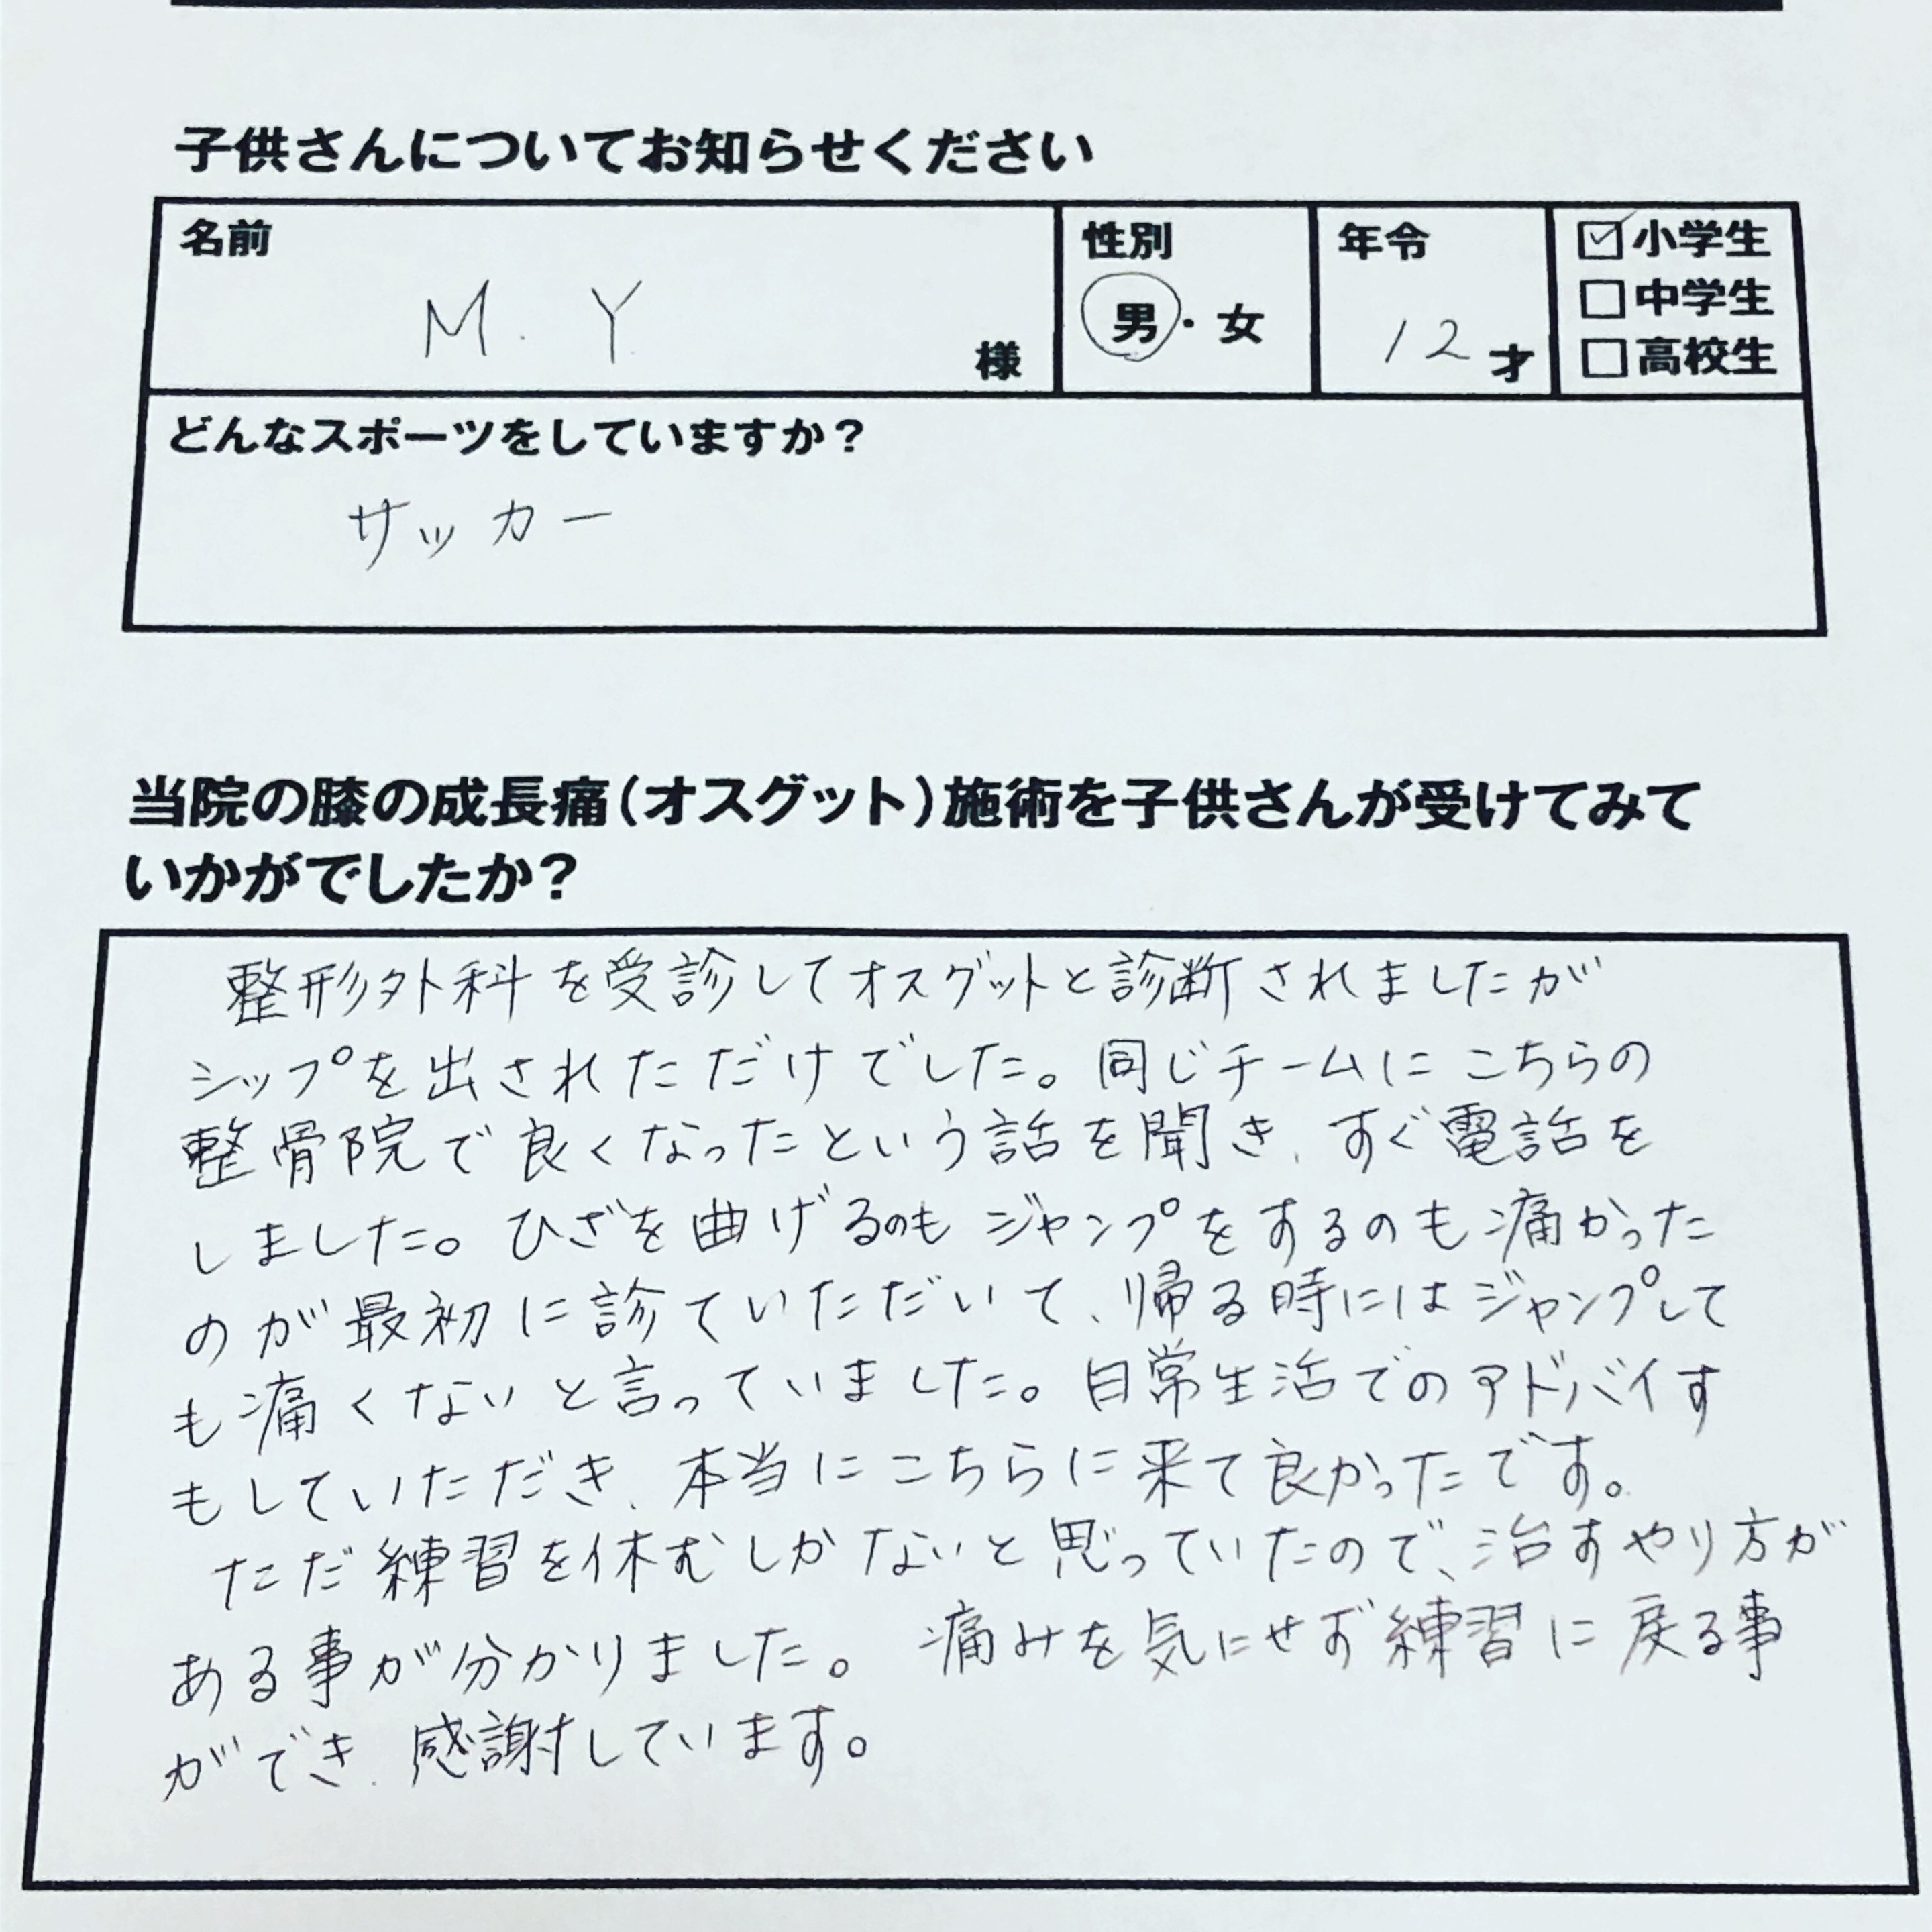 子供さんについてお知らせください
名前
M.Y 様
性別
男・女
年令
12才
☑小学生
□中学生
□高校生
どんなスポーツをしていますか？
サッカー
当院の膝の成長痛（オスグット）施術を子供さんが受けてみて
いかがでしたか？
整形外科を受診してオスグットと診断されましたが
シップを出されただけでした。同じチームにこちらの
整骨院で良くなったという話を聞き、すぐ電話を
しました。ひざを曲げるのもジャンプをするのも痛かった
のが最初に診ていただいて、帰る時にはジャンプして
も痛くないと言っていました。日常生活でのアドバイす
もしていただき、本当にこちらに来て良かったです。
ただ練習を休むしかないと思っていたので、治すやり方が
ある事が分かりました。痛みを気にせず練習に戻る事
ができ、感謝しています。